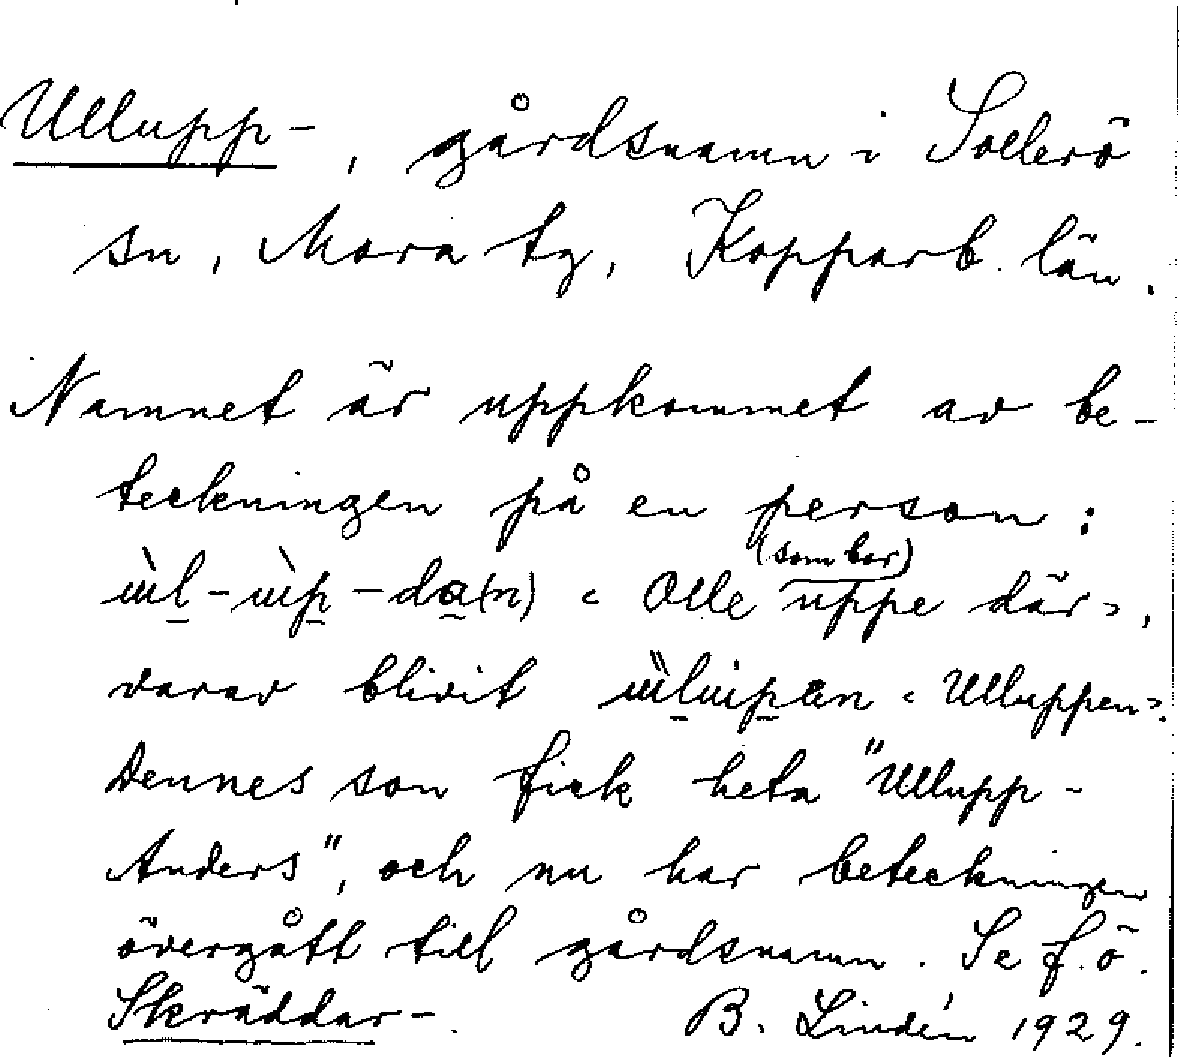 Ullupp-, gårdsnamn i Sollerö
sn, Mora tg, Kopparb. län.
Namnet är uppkommet av be-
teckningen på en person:
(som bor)
ùl-ùp-da(n) "Olle uppe där",
varav blivit ùlùpän "Ulluppen".
Dennes son fick heta "Ullupp-
Anders", och nu har beteckningen
övergått till gårdsnamn. Se f.ö.
Skräddar-. B. Lindén 1929.